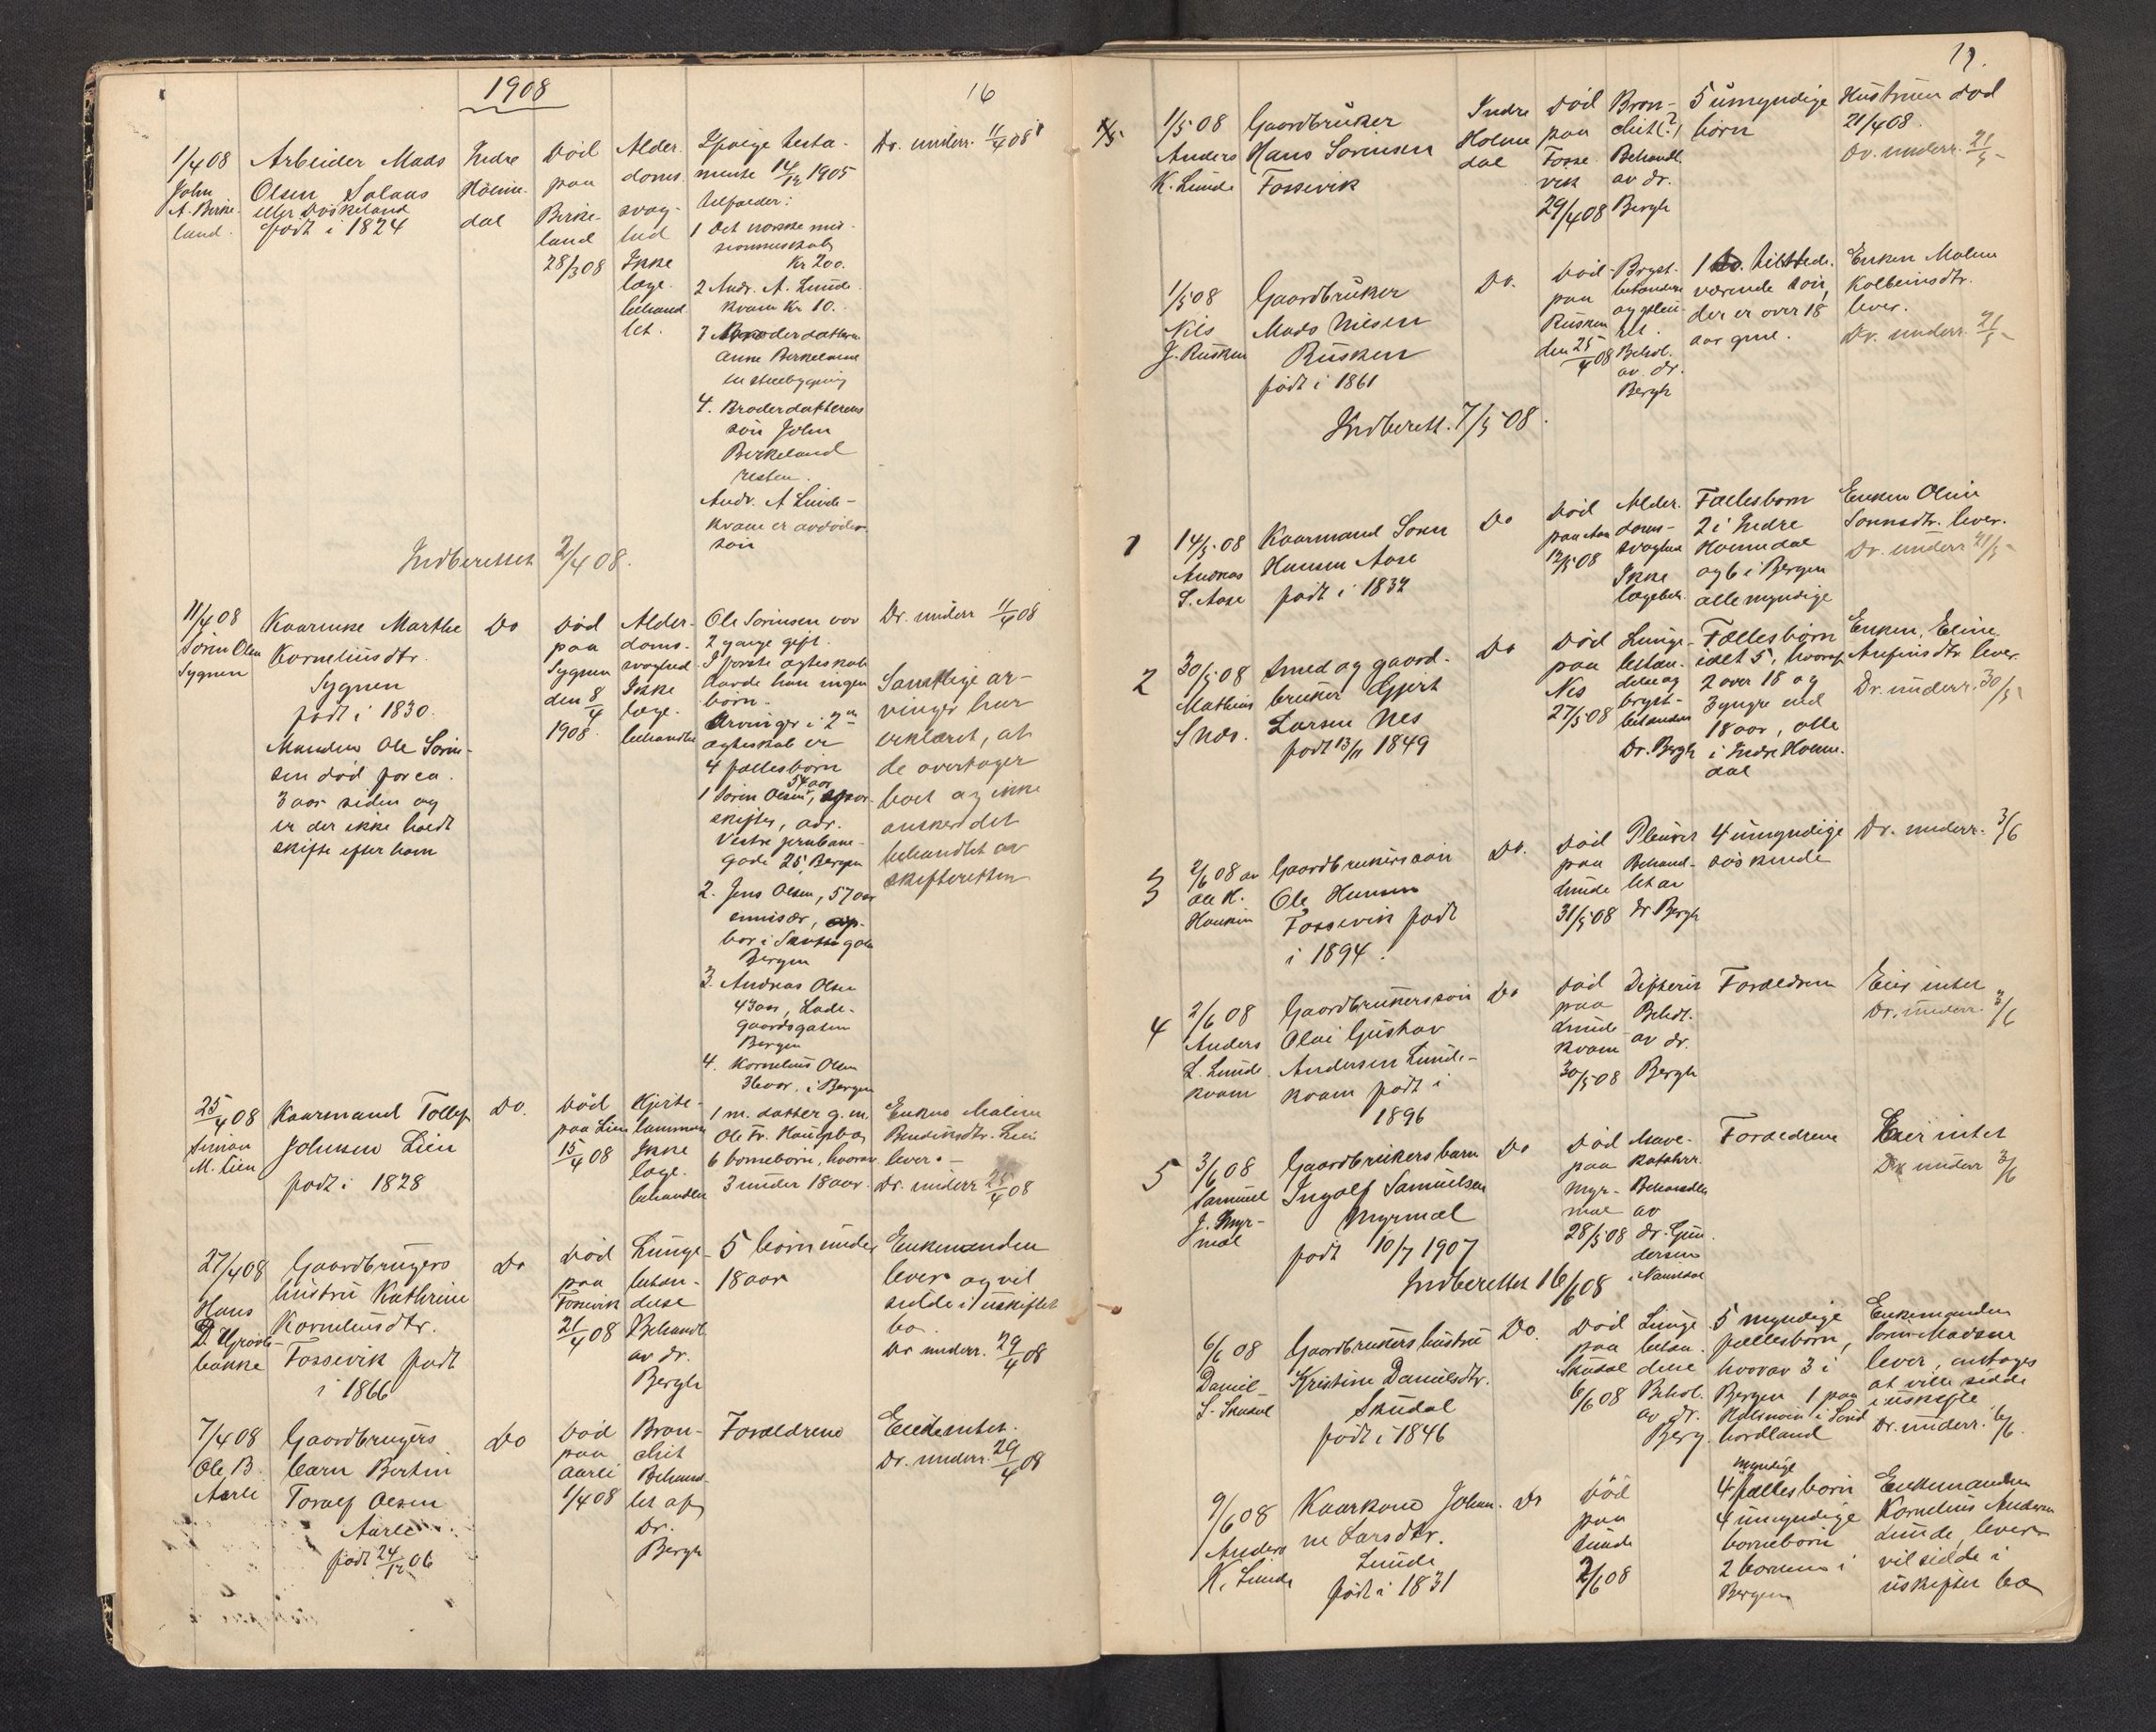 1908
16
1/4 08
John
A. Birke-
land.
Arbeider Mads
Olsen Solaas
eller Döskeland
födt i 1824
Indre
Holme
dal
Död
paa
Birke-
land
28/3 08
Alder
doms
svag-
hed
Ikke
læge
behand
let.
Ifölge testa-
mente 14/12 1905
tilfalder:
1 Det norske mis-
sionsselskab
Kr 200.
2 Andr. A. Lunde
kvam Kr 10.
3 Broderdatteren
Anne Birkeland
4. Broderdatterens
sön John
Birkeland
resten.
Andr. A Lunde-
kvam er avdödes
sön
Dr. underr. 11/4 08
Indberettet 2/4 08.
11/4 08
Sörin Olsen
Sygnen
Kaarenke Marthe
Korneliusdtr.
Sygnen
födt i 1830.
Manden Ole Sörin-
sen död for ca.
3 aar siden og
er der ikke holdt
skifte efter ham
Do
Död
paa
Sygnen
den 8/4
1908.
Alder-
doms-
svaghed
Ikke
læge-
behandlet
Ole Sörinsen var
2 gange gift.
I förste egteskab
havde han ingen
börn.
Arvinger i 2det
egteskab er
4 fællesbörn
54 aar
1 Sörin Olsen,
skifter, adr.
Vestre jernbane-
gade 25, Bergen
2. Jens Olsen, 57 aar
emissær,
bor i
Bergen
3. Andreas Olsen
43 aar, Lade-
gaardsgaten
Bergen
4. Kornelius Olsen
36 aar. i Bergen
Dr. underr 11/4 08
Samtlige ar-
vinger har
erklæret, at
de overtager
boet og ikke
önsker det
behandlet av
skifteretten
25/4 08
Simon
M. Lien
Kaarmand Tollef
Johnsen Lien
födt i 1828
Do.
Död
paa Lien
15/4 08
Hjerte-
lammelse
Ikke
læge-
behandlet
1 m. datter g. m.
Ole Fr.
6 börnebörn, hvorav
3 under 18 aar.
Enken Malene
Bendiksdtr. Lien
lever.
Dr. underr 25/4 08
27/4 08
Hans
D. Hjrode-
bakke
Gaardbrugers
hustru Kathrine
Korneliusdtr.
Fossevik födt
i 1866
Do
Död
paa
Fossevik
21/4 08
Lunge-
betæn-
delse
Behandl.
av dr.
Bergh
5 börn under
18 aar
Enkemanden
lever og vil
sidde i uskiftet
bo.
Dr underr. 29/4 08
7/4 08
Ole B.
Aarle
Gaardbrugers
barn Bertin
Toralf Olsen
Aarle
födt 24/12 06
Do
Död
paa
Aarle
1/4 08
Bron-
chit
Behand-
let af
Dr.
Bergh
Forældrene
Eiede intet.
Dr. underr. 29/4 08
17.
1/5
1/5 08
Anders
K. Lunde
Gaardbruker
Hans Sörinsen
Fossevik
Indre
Holme
dal
Död
paa
Fosse-
vik
29/4 08
Bron-
chit (?)
Behandl.
av dr.
Bergh
5 umyndige
börn
Hustruen död
21/4 08.
Dr. underr. 21/5
1/5 08
Nils
J. Rusken
Gaardbruker
Mads Nilsen
Rusken
födt i 1861
Do.
Död
paa
Rusken
den 25/4 08
Bryst-
betændelse
og pleu-
rit.
Behdl.
av dr.
Bergh
1 tilstede-
værende sön,
der er over 18
aar gml.
Enken Malene
Kolbeinsdtr.
lever.
Dr. underr. 21/5
Indberett. 7/5 08.
1
14/5 08
Andreas
S. Aase
Kaarmand Sören
Hansen Aase
födt i 1832
Do
Död
paa Aase
12/5 08
Alder
doms-
svaghed
Ikke
lægebeh.
Fællesbörn
2 i Indre
Holmedal
og 6 i Bergen
alle myndige
Enken Oline
Sönnsdtr. lever.
Dr. underr 21/5
2
30/5 08
Mathias
S Nes.
Smed og gaard-
bruker Gjert
Larsen Nes
födt 13/11 1849
Do
Död
paa
Nes
27/5 08
Lunge-
betæn-
delse og
bryst-
betændelse
Dr. Bergh
Fællesbörn
ialt 5, hvoraf
2 over 18 og
3 yngre end
18 aar, alle
i Indre Holme-
dal
Enken, Eline
Anfinsdtr lever.
Dr. underr. 30/5
3
2/6 08 av
Ole H.
Hansen
Gaardbrukerssön
Ole Hansen
Fossevik födt
i 1894.
Do.
Död
paa
Lunde
31/5 08
Pleurit
Behand-
let av
dr Bergh
4 umyndige
söskende
Dr. underr. 3/6
4
2/6 08
Anders
L. Lunde-
kvam
Gaardbrukerssön
Olai Gustav
Andersen Lunde-
kvam födt i
1896
Do
Död
paa
Lunde
kvam
30/5 08
Difterit
Behdl.
av dr.
Bergh
Forældrene
Eier intet
Dr. underr. 3/6
5
3/6 08
Samuel
J. Myr-
mæl
Gaardbrukersbarn
Ingolf Samuelsen
Myrmæl
födt 10/7 1907
Do
Död
paa
Myr-
mæl
28/5 08
Mave-
katahrr.
Behandlet
av
dr. Gun-
dersen
i Naustdal
Forældrene
Eier intet
Dr underr 3/6
Indberettet 16/6 08
6/6 08
Daniel
S. Skudal
Gaardbrukers hustru
Kristine Danielsdtr.
Skudal
födt i 1846
Do.
Död
paa
Skudal
6/6 08
Lunge
betæn-
delse
Behdl.
av dr.
Berg.
5 myndige
fællesbörn,
hvorav 3 i
Bergen 1 paa
i Sönd
hordland
Enkemanden
Sören Madsen
lever, antages
at ville sidde
i uskifte
Dr. underr. 6/6.
9/6 08
Anders
K. Lunde
Kaarkone Johan-
ne Larsdtr.
Lunde
född i 1831
Do
Död
paa
Lunde
2/6 08
myndige
4 fællesbörn
4 umyndige
börnebörn
2 börnene i
Bergen
Enkemanden
Kornelius Andersen
Lunde, lever
vil sidde i
uskiftet bo